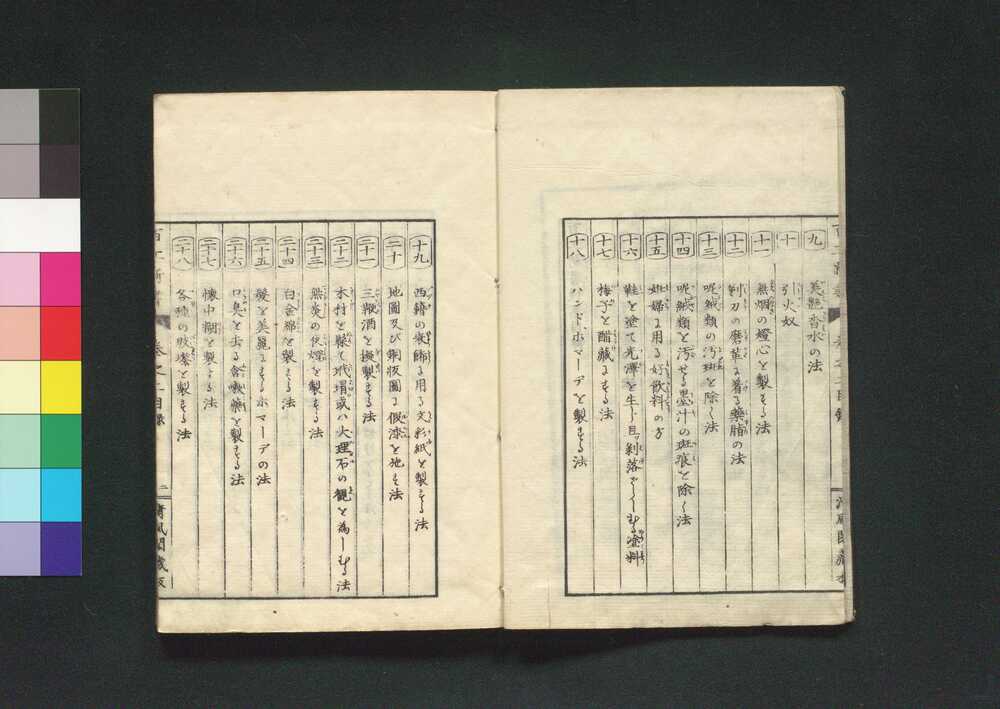 九 美艶香水の法
十 引火奴
十一 無烟の燈心を製する法
十二 剃刀の磨革に着る藥脂の法
十三 呢絨類の汚斑を除く法
十四 呢絨類を汚せる墨汁の斑痕を除く法
十五 妊婦に用る好飲料の方
十六 鞋を塗て光澤を生じ且剥落せざらしむる塗料
十七 梅子を醋藏にする法
十八 ハンドホマーデを製する法
十九 西籍の裝飾に用る文彩紙を製する法
二十 地圖及び銅版圖に假漆を地す法
二十一 三鞭酒を擬製する法
二十二 木材を裝て玳瑁或ハ大理石の觀を為しむる法
二十三 無炎の伏燈を製する法
二十四 白金綿を製する法
二十五 髮を美麗にするホマーデの法
二十六 口臭を去る含嗽藥を製する法
二十七 懷中糊を製する法
二十八 各種の吹墋を製する法
卷之二目錄
二